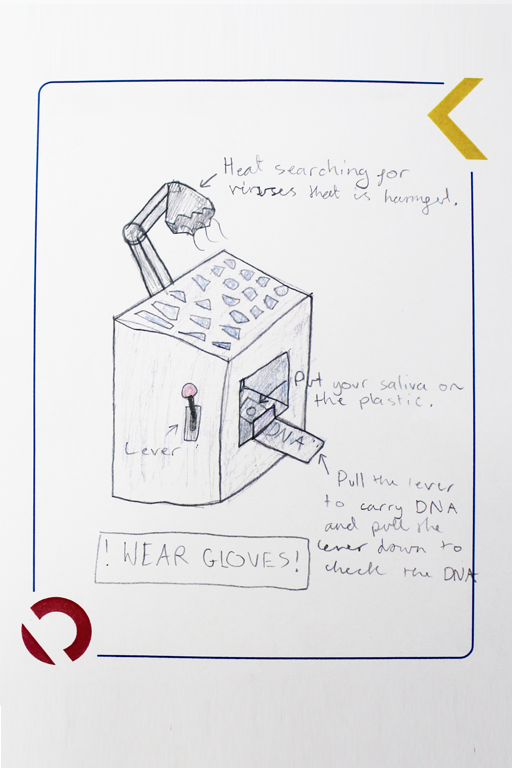 Heat searching for
viruses that is harmged.
Put your saliva on
the plastic.
DNA
Lever
Pull the lever
to carry DNA
and pull the
lever down to
check the DNA
! WEAR GLOVES!